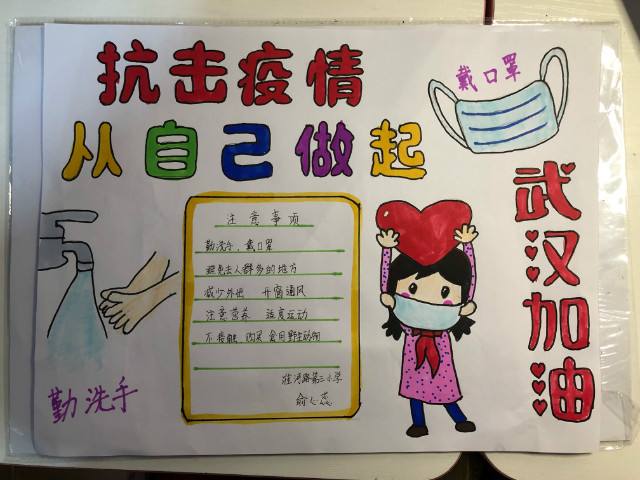 抗击疫情
戴口罩
从自己做起
武汉加油
注意事项
勤洗手，戴口罩
避免去人群多的地方
减少外出 开窗通风
注意营养 适度运动
不接触 购买 食用野生动物
路第二小学
勤洗手